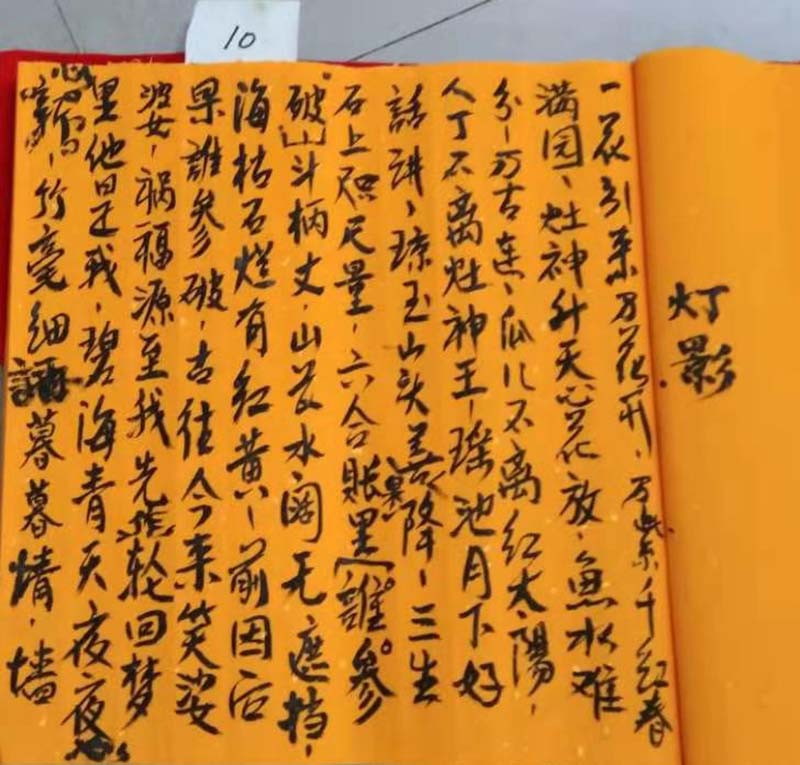 10
灯影
一花引来万花开，万紫千红春
满园，灶神升天心花放，鱼水难
分，万古连，瓜儿不离红太陽，
人丁不离灶神王，瑶池月下好
話讲，琼玉山头降，三生
石上尺量，六合賬里誰参
破，斗柄丈，山长水阔无遮挡，
海枯石烂有红黄，前因后
果誰参破，古往今来笑娑
婆，祸福源至我先轮回梦
里他是我，碧海青天夜夜心
竹毫细語暮暮情，墙